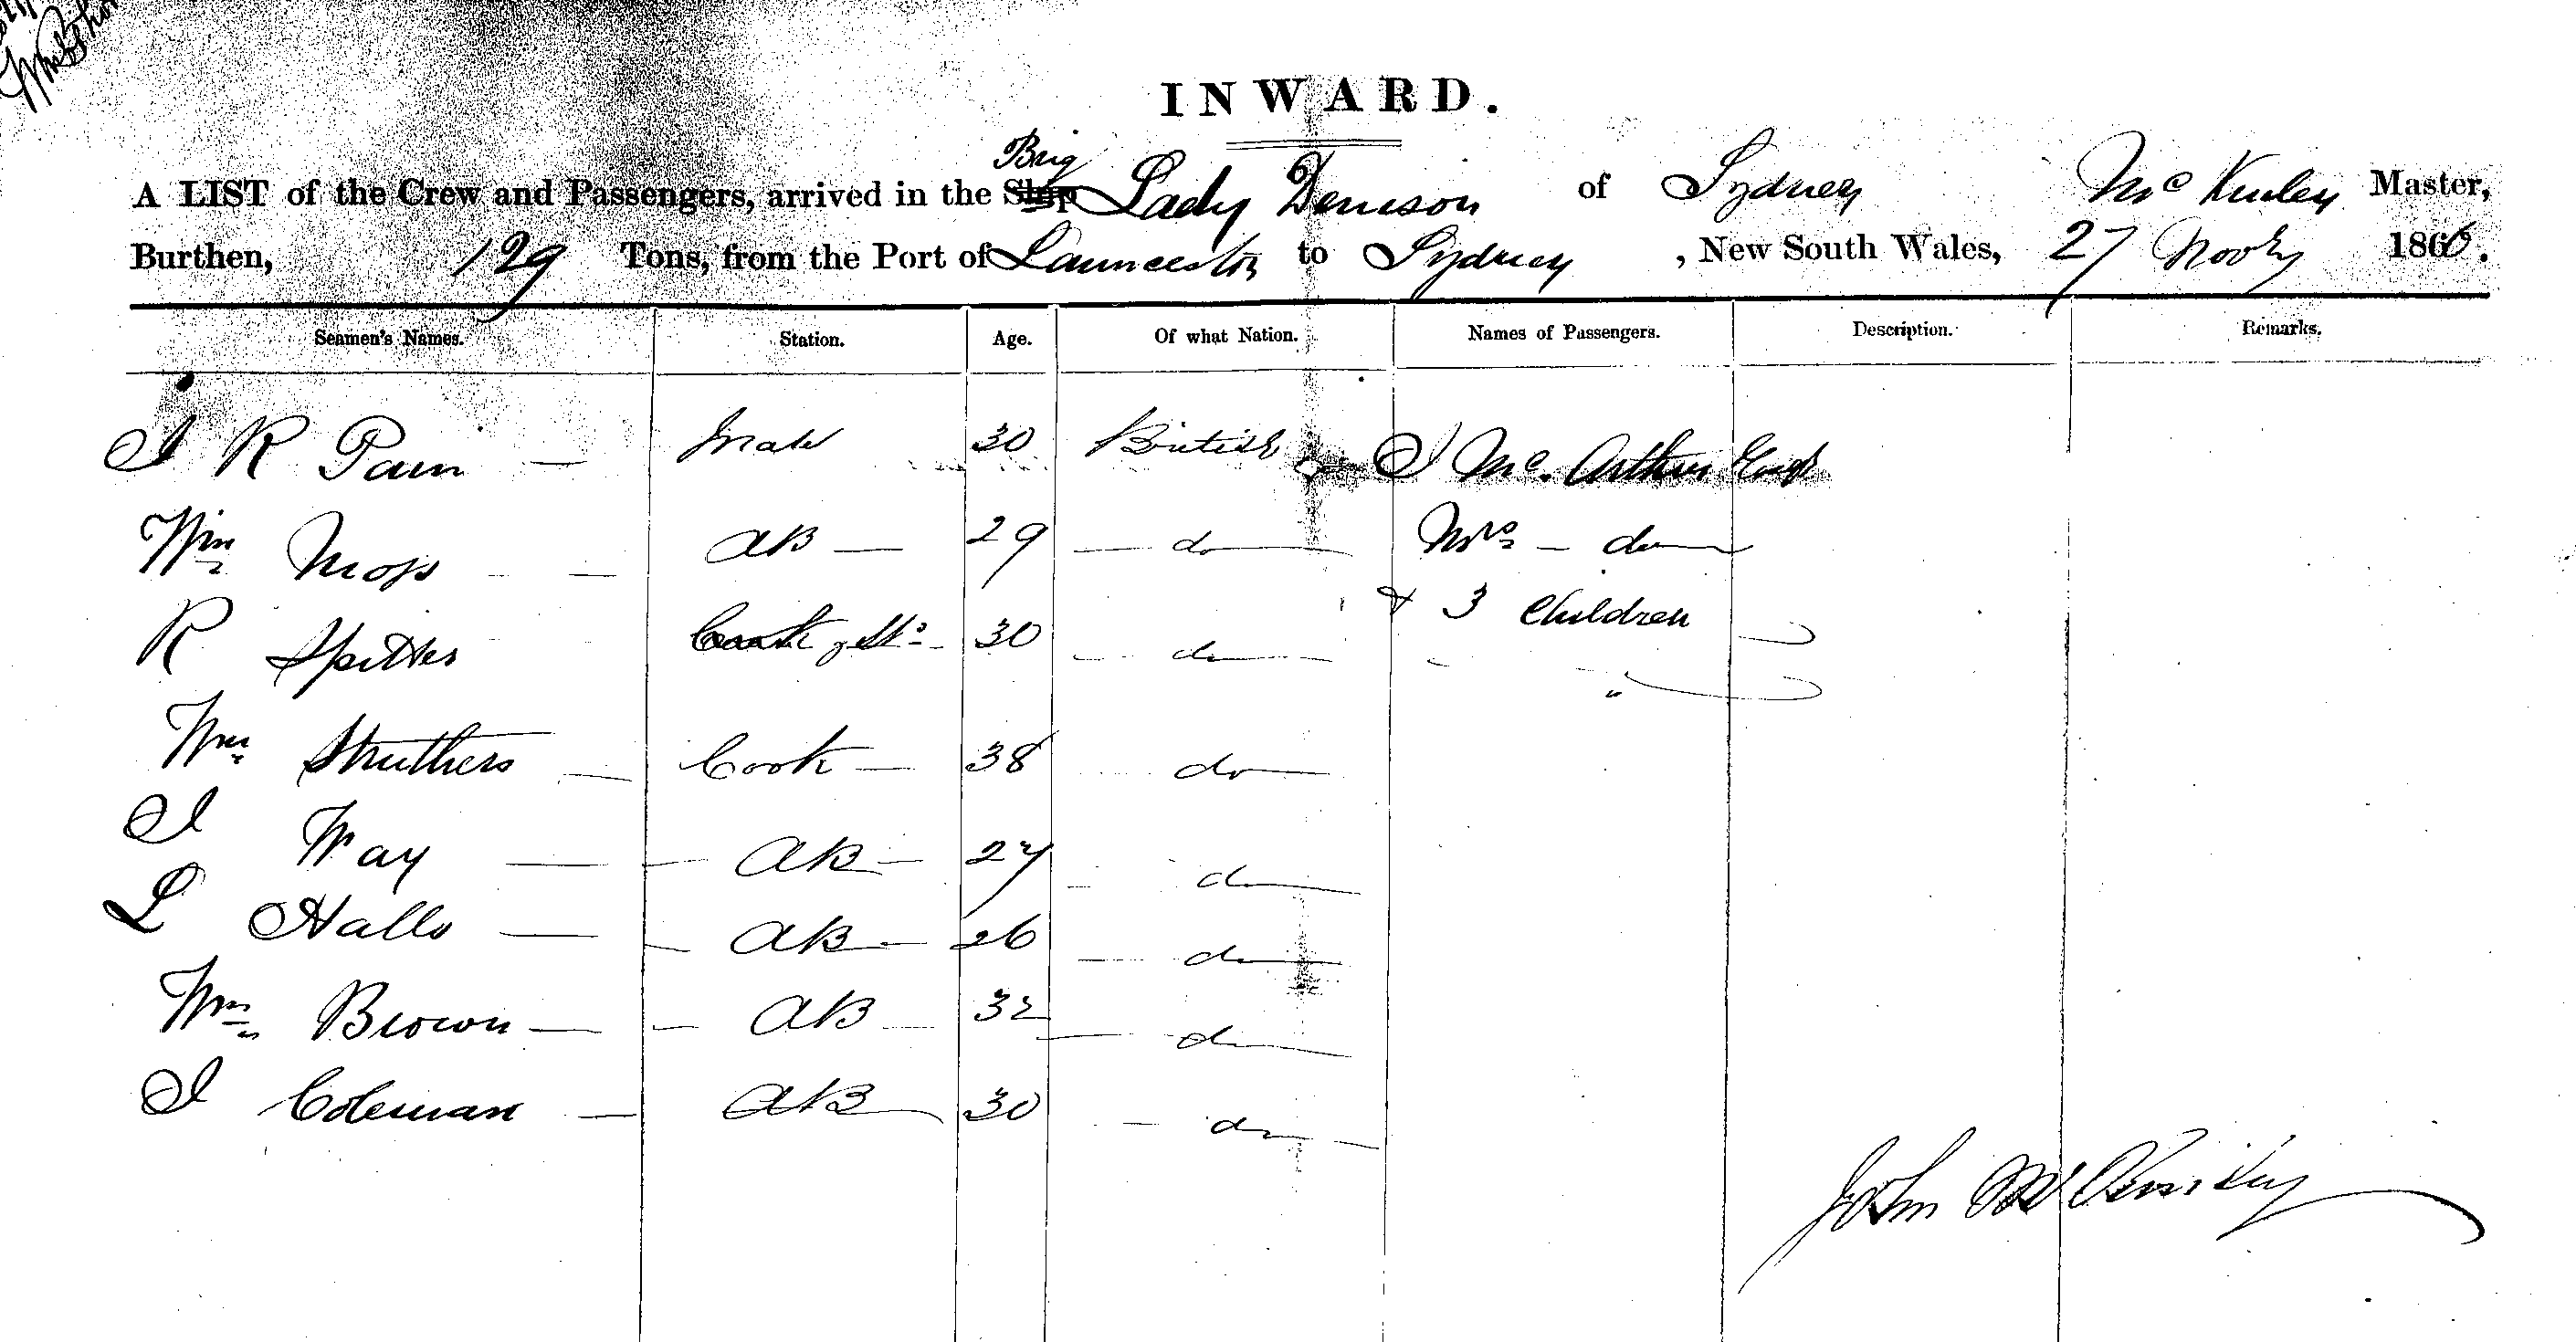 INWARD.
Brig
A LIST of the Crew and Passengers, arrived in the Ship Lady Denison of Sydney Mc Kinley Master,
Burthen, 129 Tons, from the Port of Launceston to Sydney, New South Wales, 27 1860.
Seamen's Names. Station. Age. Of what Nation. Names of Passengers. Description. Remarks.
J R Pain — Mate 30 British J Mc. Arthur Esqr
Wm Moss — AB — 29 — do — Mrs — do —
& 3 Children
R 30 — do —
Wm Struthers — Cook — 38 do —
J Way — AB — 27 — do —
L Halls — AB — 26 — do —
Wm Brown — AB 32 — do —
J Coleman — AB 30 — do —
John